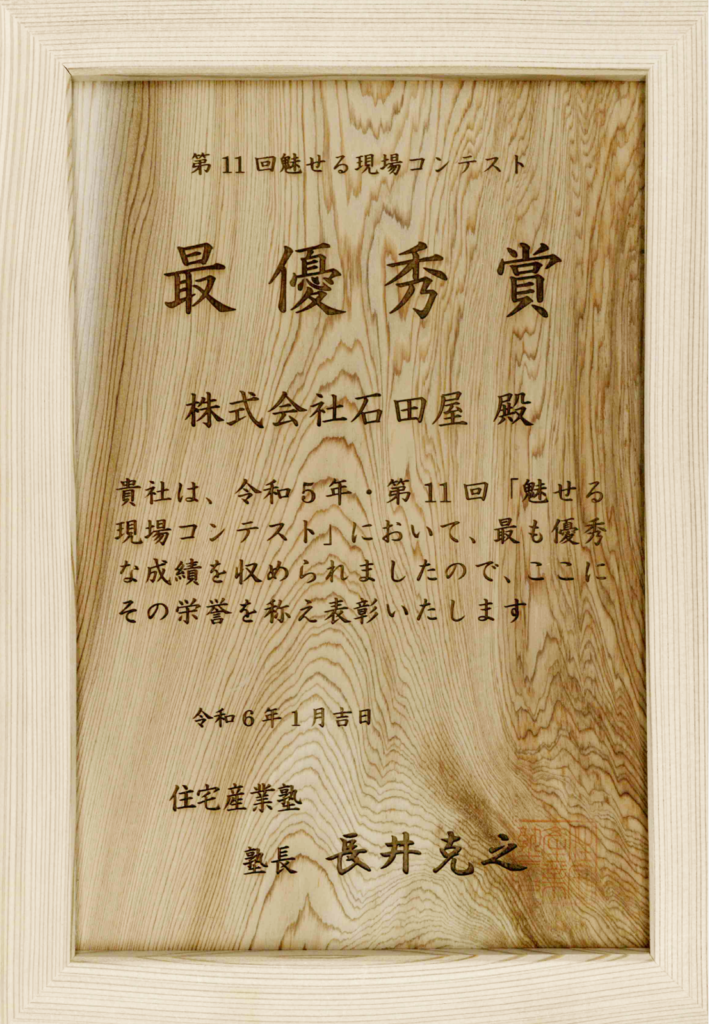 第11回魅せる現場コンテスト
最優秀賞
株式会社石田屋 殿
貴社は、令和5年・第11回「魅せる
現場コンテスト」において、最も優秀
な成績を収められましたので、ここに
その栄誉を称え表彰いたします
令和6年1月吉日
住宅産業塾
塾長 長井克之